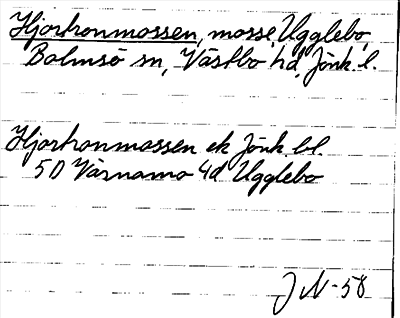 Hjortronmossen, mosse, Ugglebo,
Bolmsö sn, Västbo hd, Jönk. l.
Hjortronmossen ek Jönk bl.
5D Värnamo 4d Ugglebo
JN-58